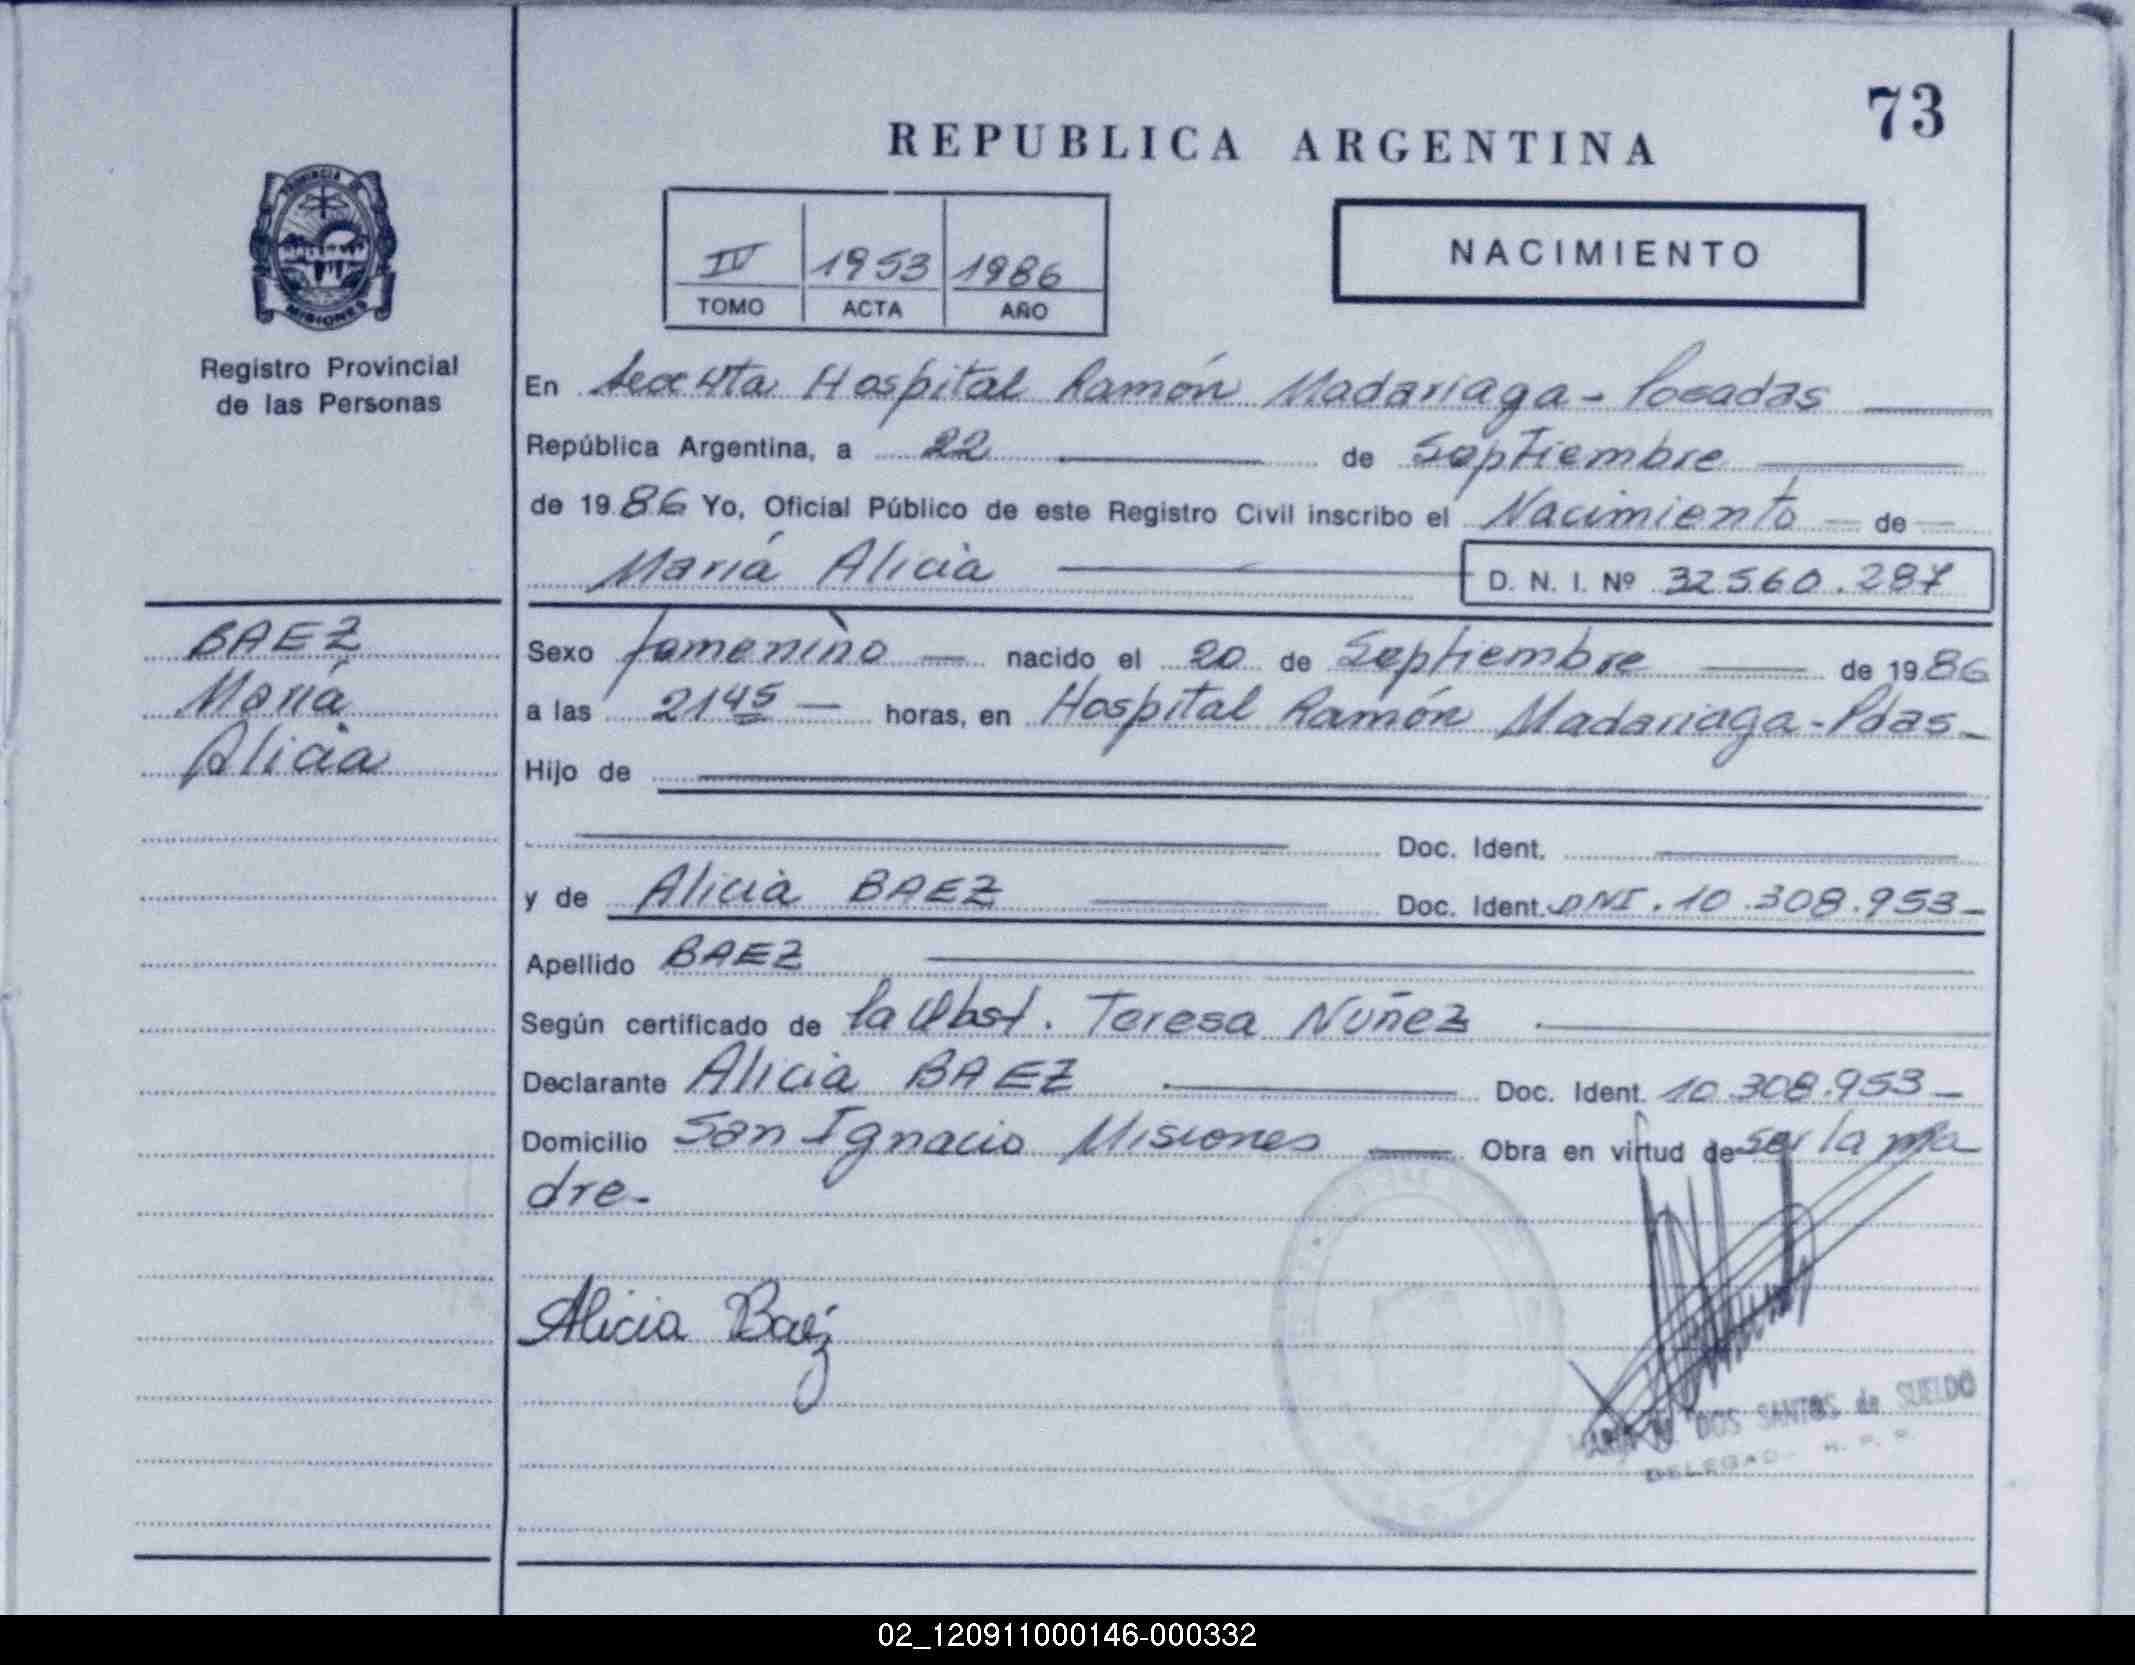 73
REPUBLICA ARGENTINA
PROVINCIA DE
MISIONES
Registro Provincial
de las Personas
IV 1953 1986
TOMO ACTA AÑO
NACIMIENTO
En Secc 4ta Hospital Ramón Madariaga - Posadas
República Argentina, a 22 de Septiembre
de 1986 Yo, Oficial Público de este Registro Civil inscribo el Nacimiento de
María Alicia D. N. I. Nº 32560.287
BAEZ
María
Alicia
Sexo femenino nacido el 20 de Septiembre de 1986
a las 21 45 horas, en Hospital Ramón Madariaga - Pdas -
Hijo de
Doc. Ident.
y de Alicia BAEZ Doc. Ident. DNI. 10.308.953 -
Apellido BAEZ
Según certificado de la Obst. Teresa Nuñez
Declarante Alicia BAEZ Doc. Ident. 10.308.953 -
Domicilio San Ignacio Misiones Obra en virtud de ser la ma
dre -
Alicia Baez
DOS SANTOS de SUELDO
R. P. P.
02_120911000146-000332